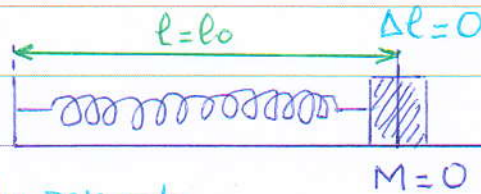 l=l₀ Δl=0
M=0